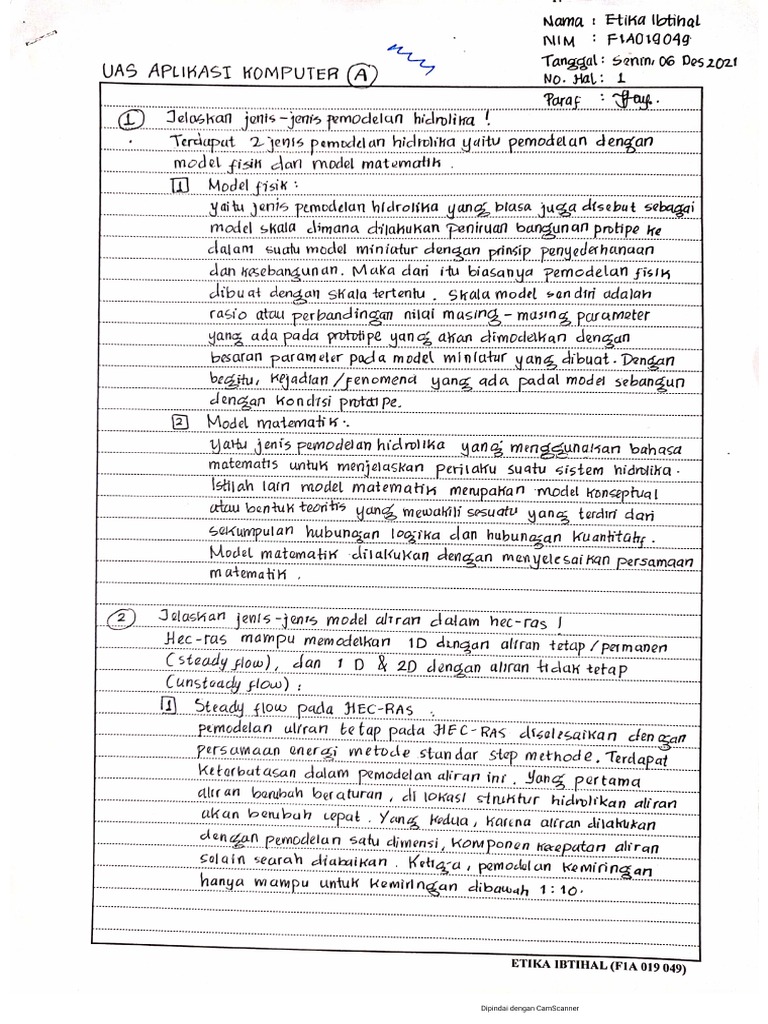 Nama : Etika Ibtihal
NIM : F1A019049
Tanggal : Senin, 06 Des 2021
No. Hal : 1
Paraf :
UAS APLIKASI KOMPUTER (A)
1 Jelaskan jenis-jenis pemodelan hidrolika !
Terdapat 2 jenis pemodelan hidrolika yaitu pemodelan dengan
model fisik dan model matematik .
1 Model fisik :
yaitu jenis pemodelan hidrolika yang biasa juga disebut sebagai
model skala dimana dilakukan peniruan bangunan protipe ke
dalam suatu model miniatur dengan prinsip penyederhanaan
dan kesebangunan. Maka dari itu biasanya pemodelan fisik
dibuat dengan skala tertentu . Skala model sendiri adalah
rasio atau perbandingan nilai masing-masing parameter
yang ada pada prototipe yang akan dimodelkan dengan
besaran parameter pada model miniatur yang dibuat. Dengan
begitu, kejadian/fenomena yang ada padal model sebangun
dengan kondisi prototipe.
2 Model matematik :
Yaitu jenis pemodelan hidrolika yang menggunakan bahasa
matematis untuk menjelaskan perilaku suatu sistem hidrolika.
Istilah lain model matematik merupakan model konseptual
atau bentuk teoritis yang mewakili sesuatu yang terdiri dari
sekumpulan hubungan logika dan hubungan kuantitatif.
Model matematik dilakukan dengan menyelesaikan persamaan
matematik .
2 Jelaskan jenis-jenis model aliran dalam hec-ras !
Hec-ras mampu memodelkan 1D dengan aliran tetap/permanen
(steady flow), dan 1 D & 2D dengan aliran tidak tetap
(unsteady flow) :
1 Steady flow pada HEC-RAS :
pemodelan aliran tetap pada HEC-RAS diselesaikan dengan
persamaan energi metode standar step methode. Terdapat
keterbatasan dalam pemodelan aliran ini . Yang pertama
aliran berubah beraturan, di lokasi struktur hidrolikan aliran
akan berubah cepat . Yang kedua, karena aliran dilakukan
dengan pemodelan satu dimensi, komponen kecepatan aliran
selain searah diabaikan . Ketiga, pemodelan kemiringan
hanya mampu untuk kemiringan dibawah 1:10.
ETIKA IBTIHAL (F1A 019 049)
Dipindai dengan CamScanner